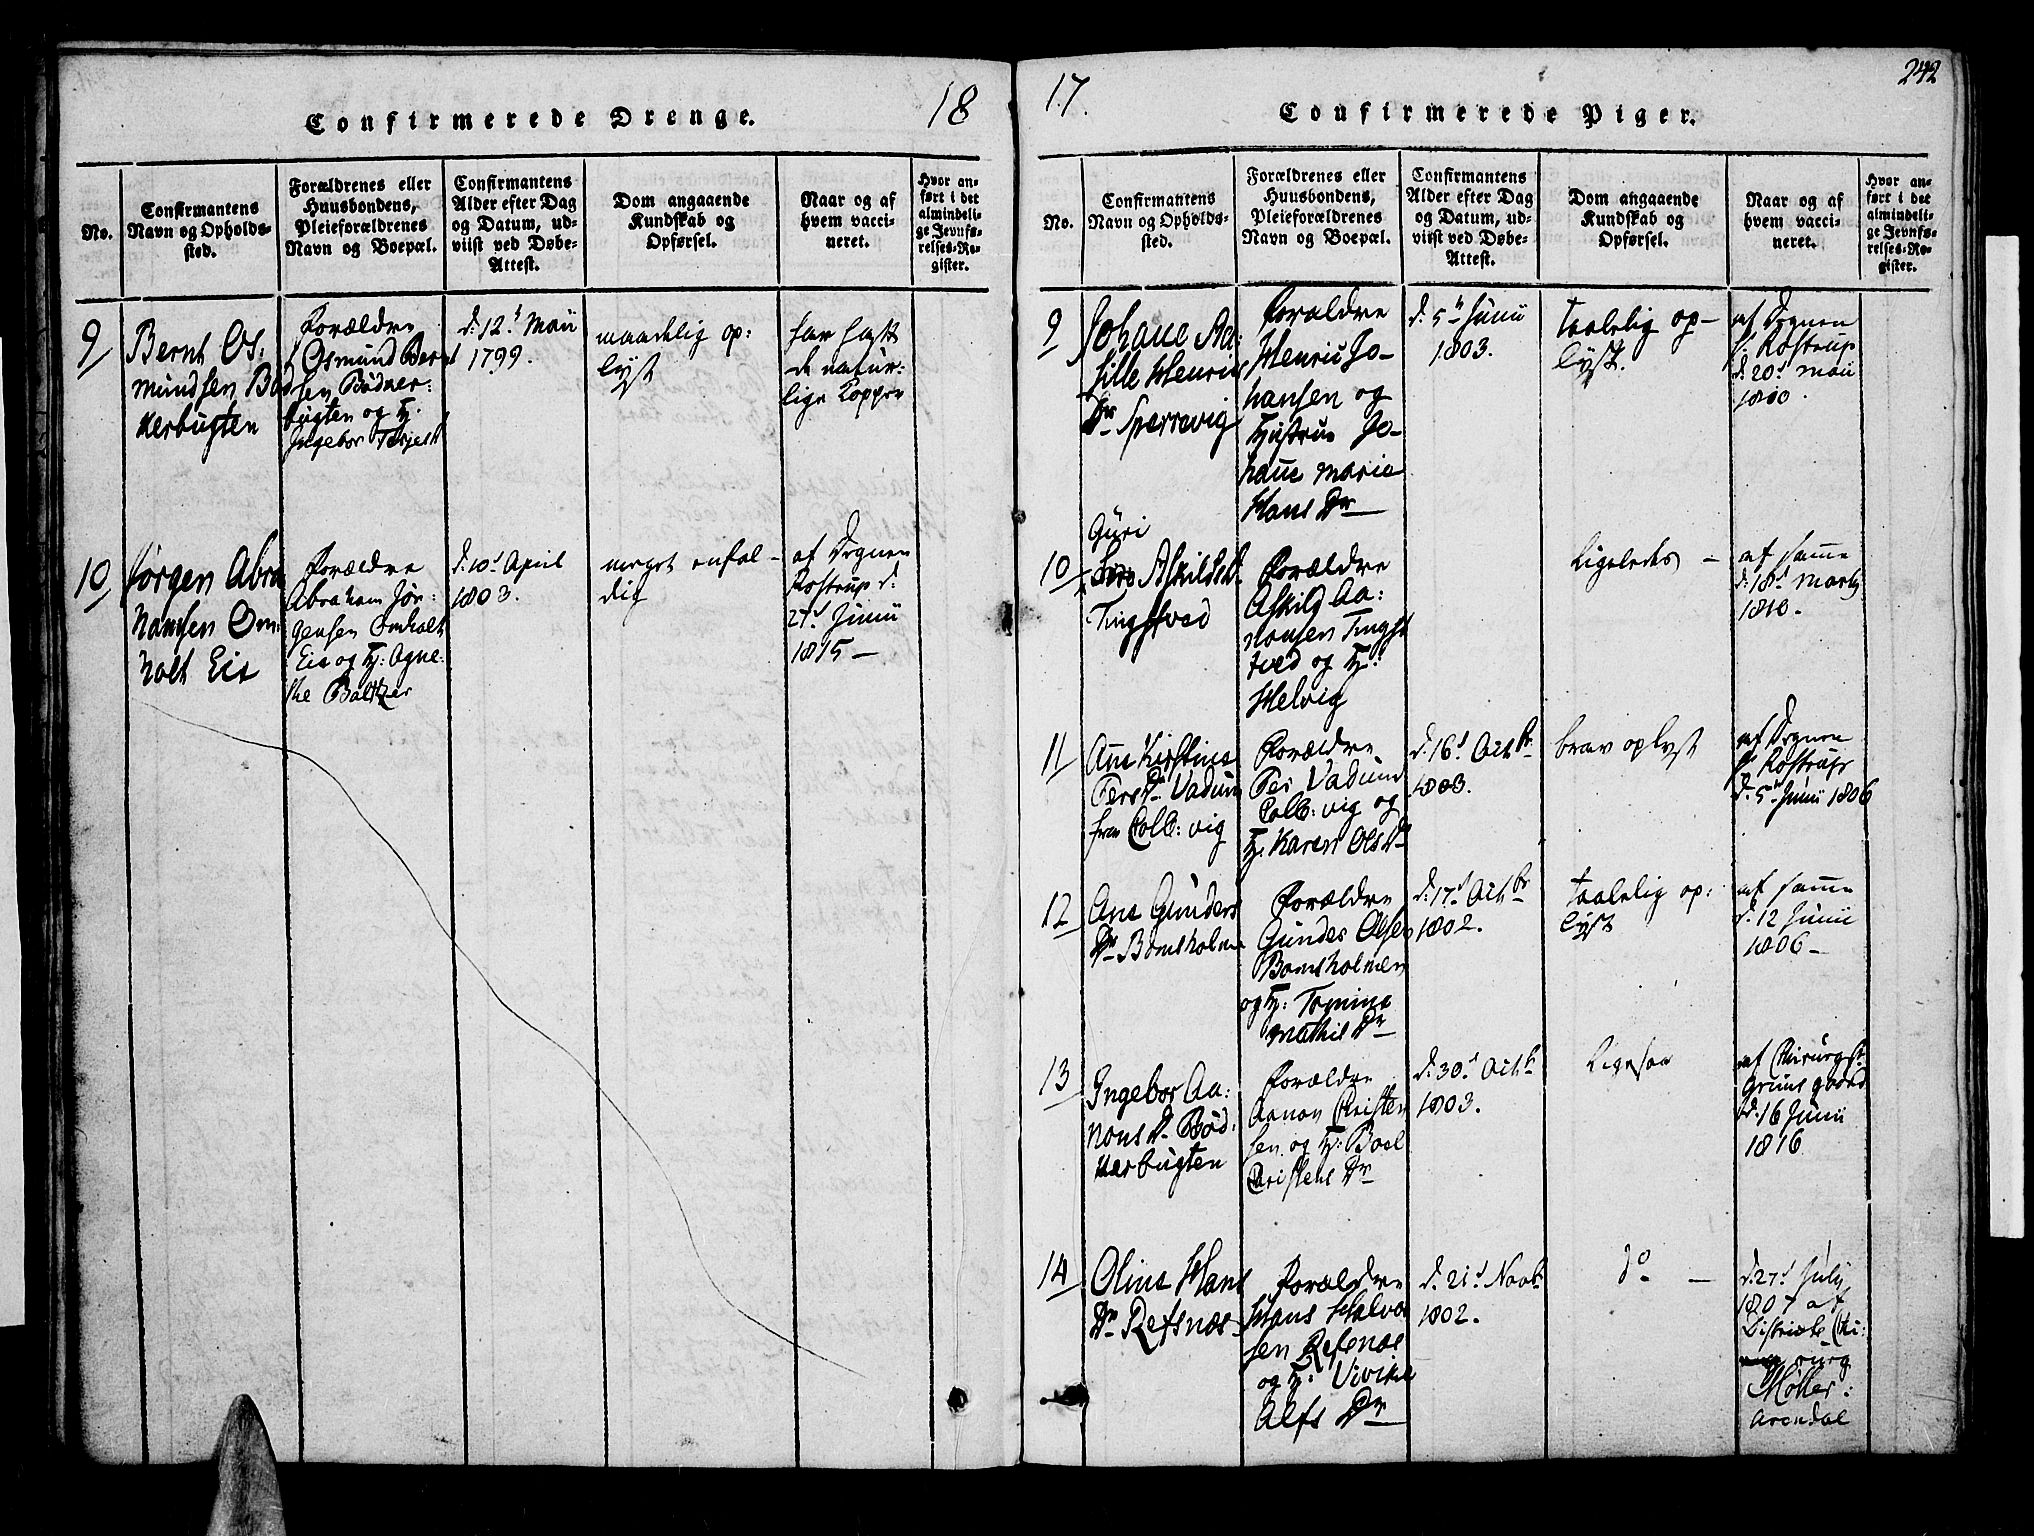 Confirmerede Drenge.
18
No.
Confirmantens
Navn og Opholds-
sted.
Forældrenes eller
Huusbondens,
Pleieforældrenes
Navn og Boepæl.
Confirmantens
Alder efter Dag
og Datum, ud-
viist ved Døbe-
Attest.
Dom angaaende
Kundskab og
Opførsel.
Naar og af
hvem vacci-
neret.
Hvor an-
ført i det
almindeli-
ge Jevnfø-
relses-Re-
gister.
9
Bernt Os:
mundsen Bød
kerbugten
Forældre
Osmund Bernt
sen Bødker:
bugten og H:
Ingebor Terjesd
d: 12t Maii
1799.
maadelig op:
lyst
har haft
de natur:
lige Kopper
10
Jørgen Abra
hamsen Om:
holt Eie
Forældre
Abraham Jør:
gensen Omholt
Eie og H: Agne:
the Baltzer
d: 10d April
1803.
meget enfol-
dig
af Degnen
Rostrup d:
27d Junii
1815 -
17.
242
Confirmerede Piger.
No.
Confirmantens
Navn og Opholds-
sted.
Forældrenes eller
Huusbondens,
Pleieforældrenes
Navn og Boepæl.
Confirmantens
Alder efter Dag
og Datum, ud-
viist ved Døbe-
Attest.
Dom angaaende
Kundskab og
Opførsel.
Naar og af
hvem vacci-
neret.
Hvor an-
ført i det
almindeli-
ge Jevnfø-
relses-Re-
gister.
9
Johane
Henrics
Dr Sperrevig
Forældre
Henric Jo-
hansen og
Hustrue Jo-
hane Maria
Hans Dr
d: 5t Junii
1803.
taalelig op-
lyst.
af Degnen
Hr Rostrup
d: 20d Maii
1810.
10
Guri
Askilds D.
Tingstved
Forældre
Askild Aa:
nonsen Tingst
tved og H:
Helvig
Ligeledes -
af samme
d: 18d Marty
1810 -
11
Ane Kirstine
Pers D. Vadum
fra Colb: vig
Forældre
Per Vadum
Colb: vig og
H: Karen Ols Dr
d: 16d Octbr
1803.
brav oplyst
af Degnen
Hr Rostrup
d: 5t Junii 1806
12
Ane Gunders
Dr Bomsholmen
Forældre
Gunder Olsen
Bomsholmen
og H: Tomine
Mathis Dr
d: 17d Octbr
1802.
taalelig op:
lyst
af samme
d: 12 Junii
1806 -
13
Ingebor Aa:
nons D. Bød:
kerbugten
Forældre
Aanon Cristen
sen og H: Boel
Christens Dr
d: 30d Octbr
1803.
Ligesaa
af Chirurgst
Grunsgaard
d: 16 Junii
1816
14
Oline Hans
Dr Refsnæs
Forældre
Hans Halvor
sen Refsnæs
og H: Viviche
Alfs Dr
d: 21d Novb:
1802.
do -
d: 27d July
1807 af
Districts Chi:
rurg
Møller:
Arendal